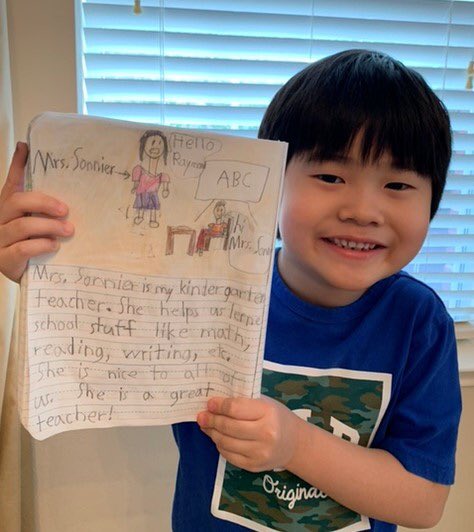 Hello
Raymond
Mrs. Sonnier
ABC
Hi
Mrs.
Mrs. Sonnier is my kindergarten
teacher. She helps us lerne
school stuff like math,
reading, writing, etc.
She is nice to all of
us. She is a great
teacher!
Original